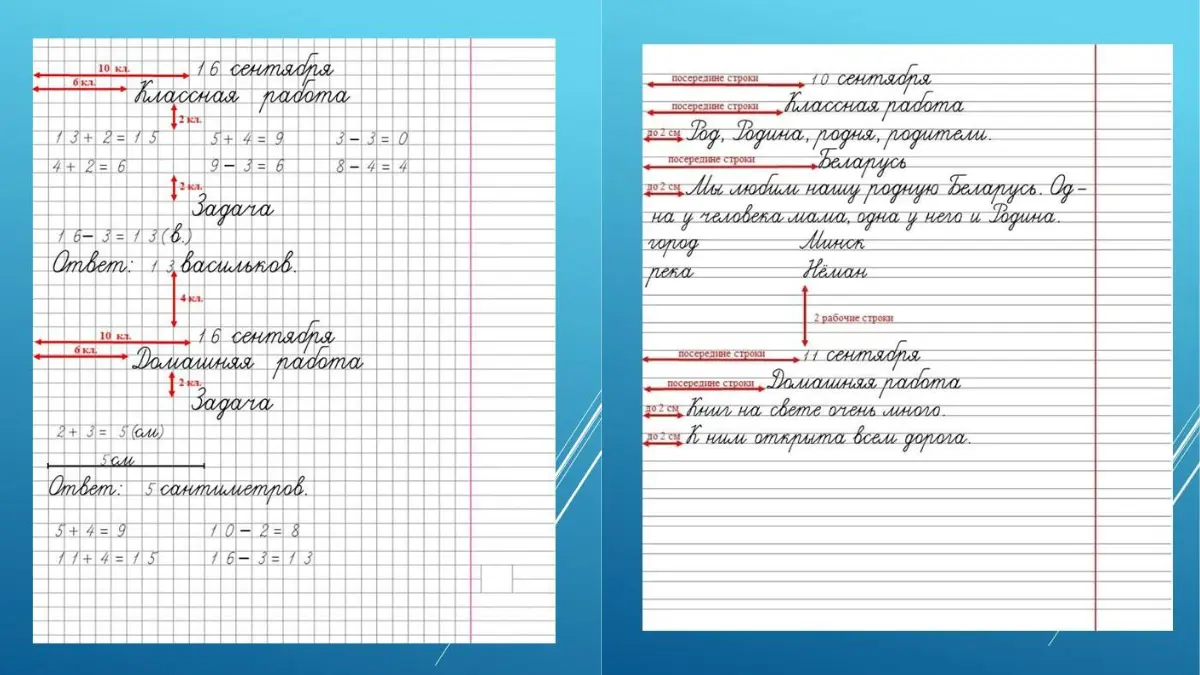 10 кл.
16 сентября
6 кл.
Классная работа
2 кл.
13+2=15 5+4=9 3-3=0
4+2=6 9-3=6 8-4=4
2 кл.
Задача
16-3=13(в.)
Ответ: 13 васильков.
4 кл.
10 кл.
16 сентября
6 кл.
Домашняя работа
2 кл.
Задача
2+3=5(см)
5см
Ответ: 5 сантиметров.
5+4=9 10-2=8
11+4=15 16-3=13
посередине строки 10 сентября
посередине строки Классная работа
до 2 см Род, Родина, родня, родители.
посередине строки Беларусь
до 2 см Мы любим нашу родную Беларусь. Од-
на у человека мама, одна у него и Родина.
город Минск
река Нёман
2 рабочие строки
посередине строки 11 сентября
посередине строки Домашняя работа
до 2 см Книг на свете очень много.
до 2 см К ним открыта всем дорога.